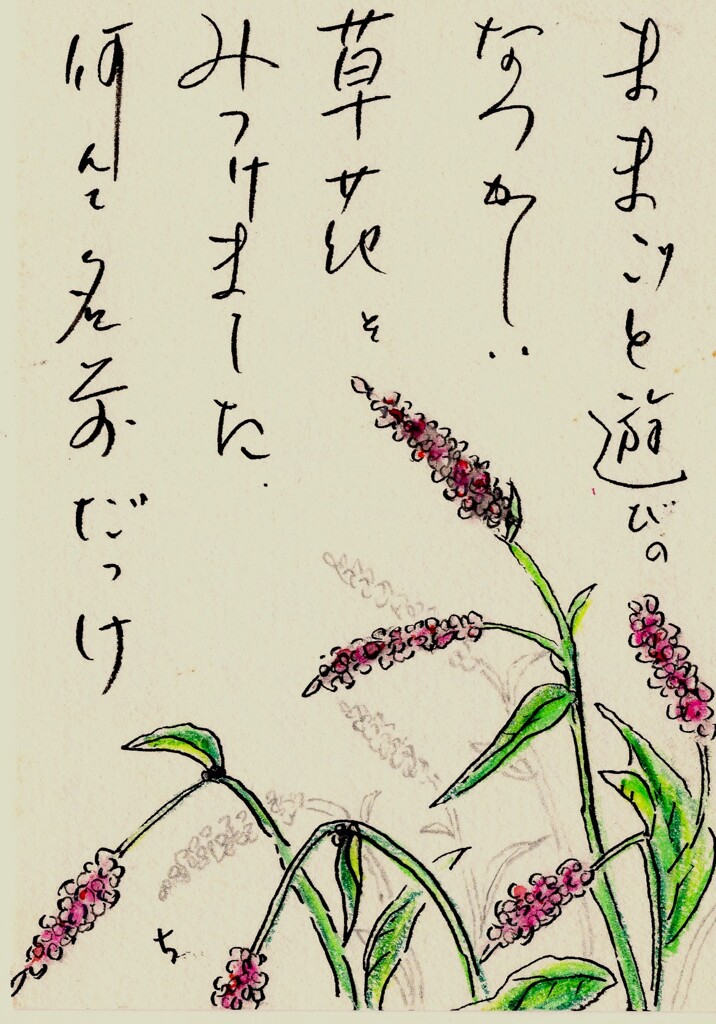 ままごと遊びの
なつかしい
草花を
みつけました.
何んて名前だっけ
ち